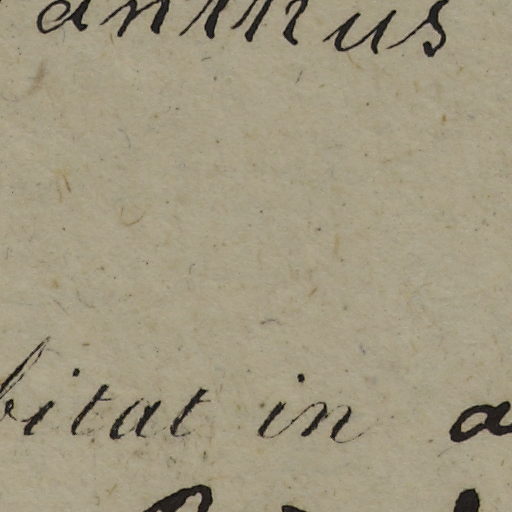 anthus
bitat in a